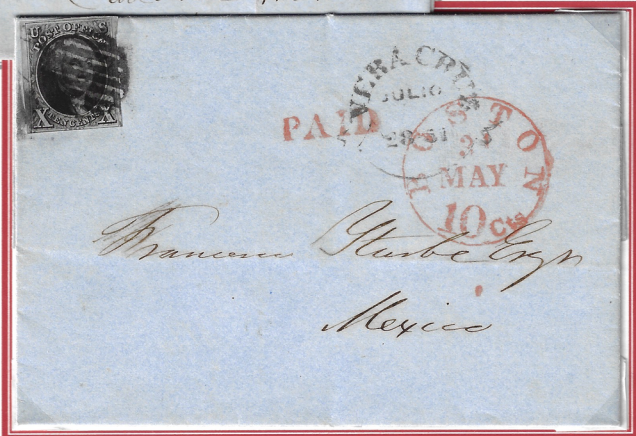 U S
POST OFFICE
X TEN CENTS X
VERA CRUZ
JULIO
28 51
PAID
BOSTON
3
MAY
10 Cts
Francisco Yturbe Esqr
Mexico